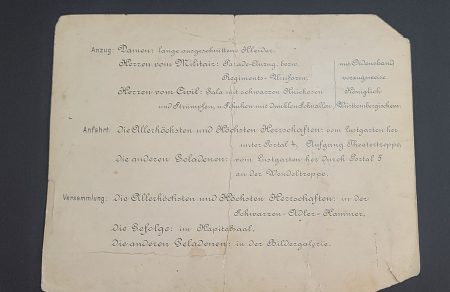 Anzug: Damen: lange ausgeschnittene Kleider.
Herren vom Militair: Parade-Anzug bezw. Regiments-Uniform,
Herren vom Civil: Gala mit schwarzen Kniehosen und Strümpfen, u. Schuhen mit dunklen Schnallen,
mit Ordensband vorzugsweise Königlich Württembergischem.
Anfahrt: die Allerhöchsten und Höchsten Herrschaften: vom Lustgarten her
unter Portal 4, Aufgang Theatertreppe,
die anderen Geladenen: vom Lustgarten her durch Portal 5
an der Wendeltreppe.
Versammlung: die Allerhöchsten und Höchsten Herrschaften: in der
Schwarzen-Adler-Kammer,
die Gefolge: im Kapitelsaal,
die anderen Geladenen: in der Bildergalerie.